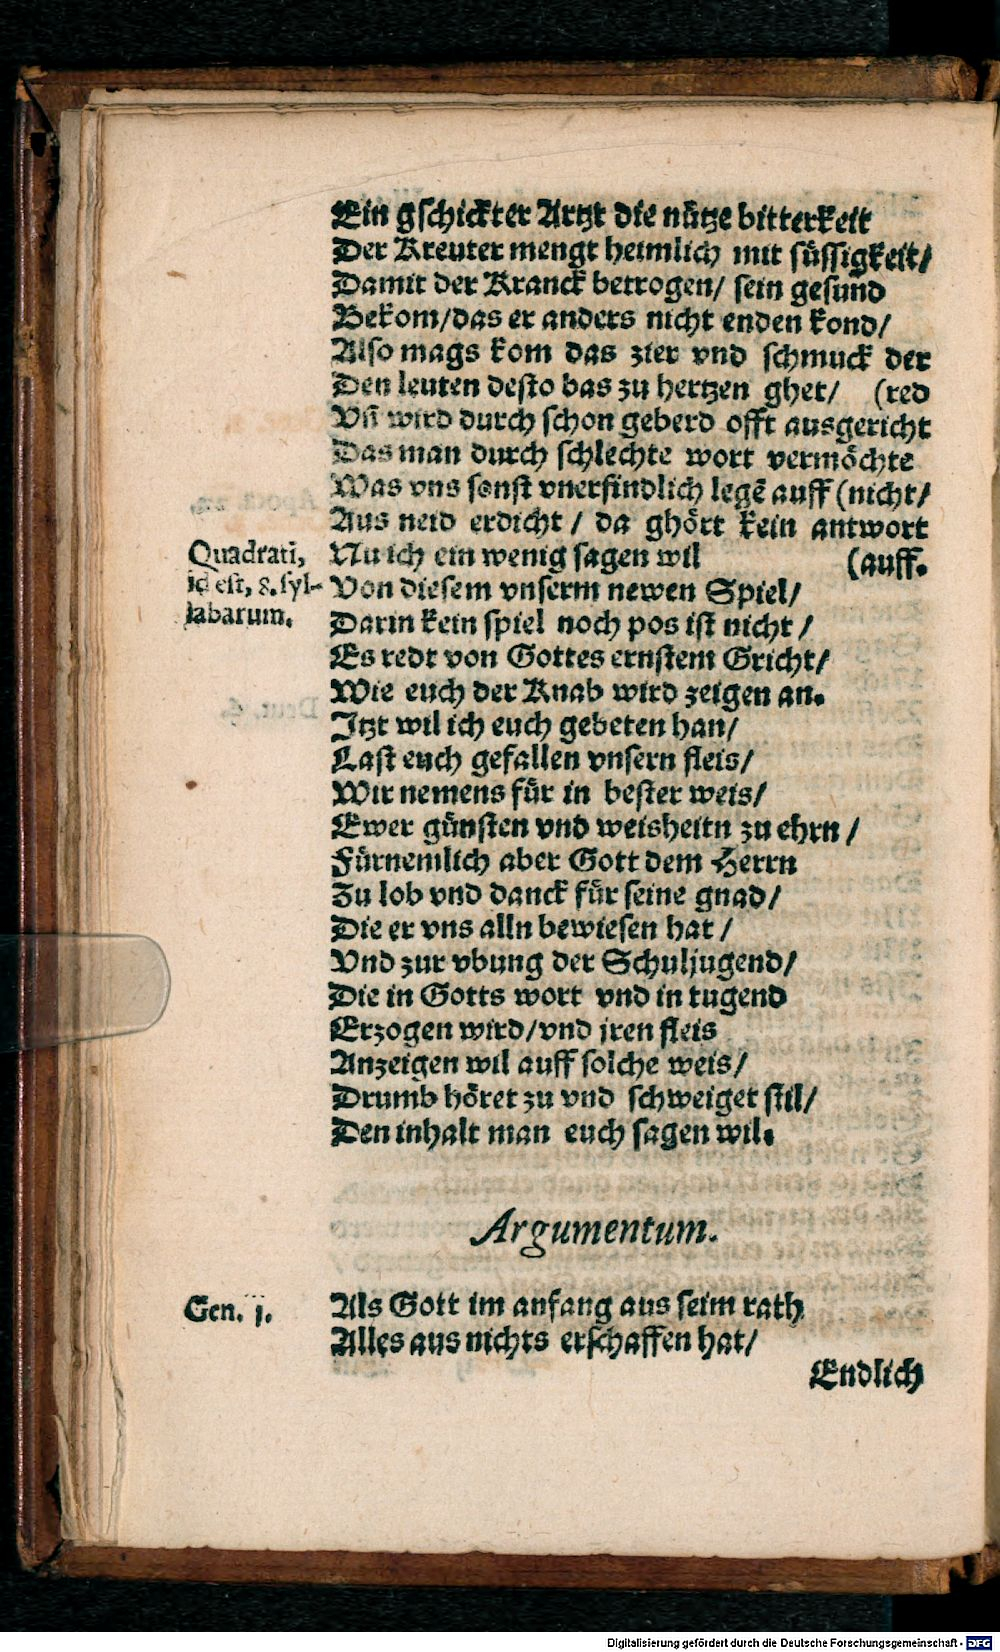 Ein gschickter Artzt die nütze bitterkeit
Der Kreuter mengt heimlich mit süssigkeit/
Damit der Kranck betrogen/ sein gesund
Bekom/das er anders nicht enden kond/
Also mags kom das zier vnd schmuck der
Den leuten desto bas zu hertzen ghet/ (red
Vñ wird durch schon geberd offt ausgericht
Das man durch schlechte wort vermöchte
Was vns sonst vnerfindlich legẽ auff (nicht/
Aus neid erdicht/ da ghört kein antwort
Nu ich ein wenig sagen wil (auff.
Quadrati,
id est, 8. syl-
labarum.
Von diesem vnserm newen Spiel/
Darin kein spiel noch pos ist nicht/
Es redt von Gottes ernstem Gricht/
Wie euch der Knab wird zeigen an.
Itzt wil ich euch gebeten han/
Last euch gefallen vnsern fleis/
Wir nemens für in bester weis/
Ewer günsten vnd weisheitn zu ehrn/
Fürnemlich aber Gott dem Herrn
Zu lob vnd danck für seine gnad/
Die er vns alln bewiesen hat/
Vnd zur vbung der Schuljugend/
Die in Gotts wort vnd in tugend
Erzogen wird/vnd jren fleis
Anzeigen wil auff solche weis/
Drumb höret zu vnd schweiget stil/
Den inhalt man euch sagen wil.
Argumentum.
Gen. j.
Als Gott im anfang aus seim rath
Alles aus nichts erschaffen hat/
Endlich
Digitalisierung gefördert durch die Deutsche Forschungsgemeinschaft - DFG